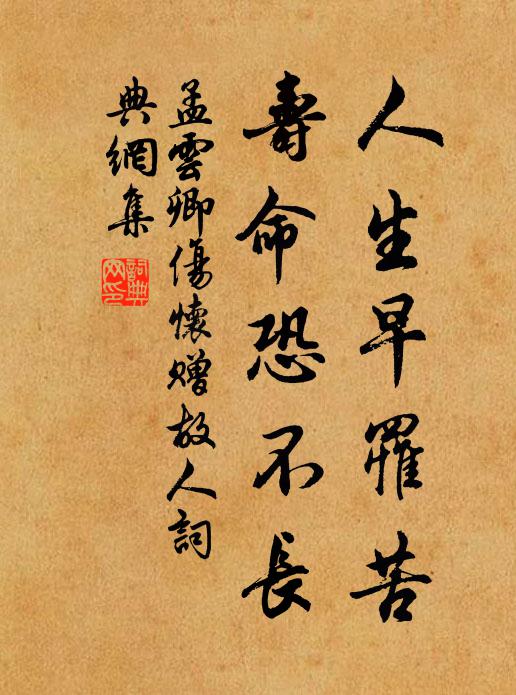 人生早罹苦
壽命恐不長
孟雲卿傷懷贈故人詞
典網集
詞典
網印